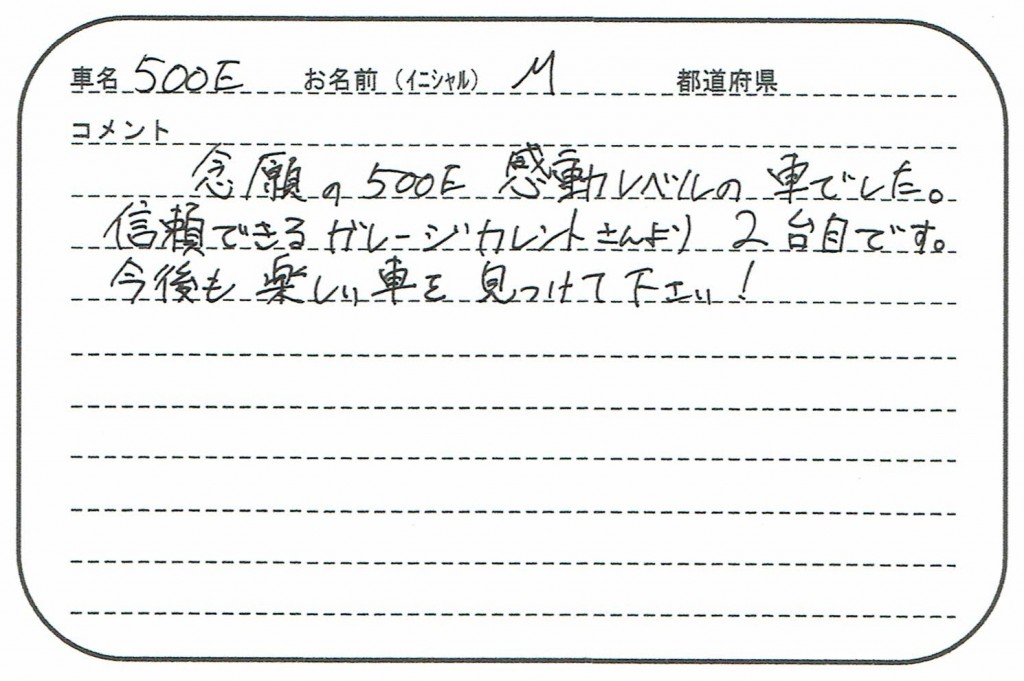 車名 500E お名前（イニシャル） M 都道府県
コメント
念願の500E 感動レベルの車でした。
信頼できるガレージカレントさんより 2台目です。
今後も楽しい車を見つけて下さい！